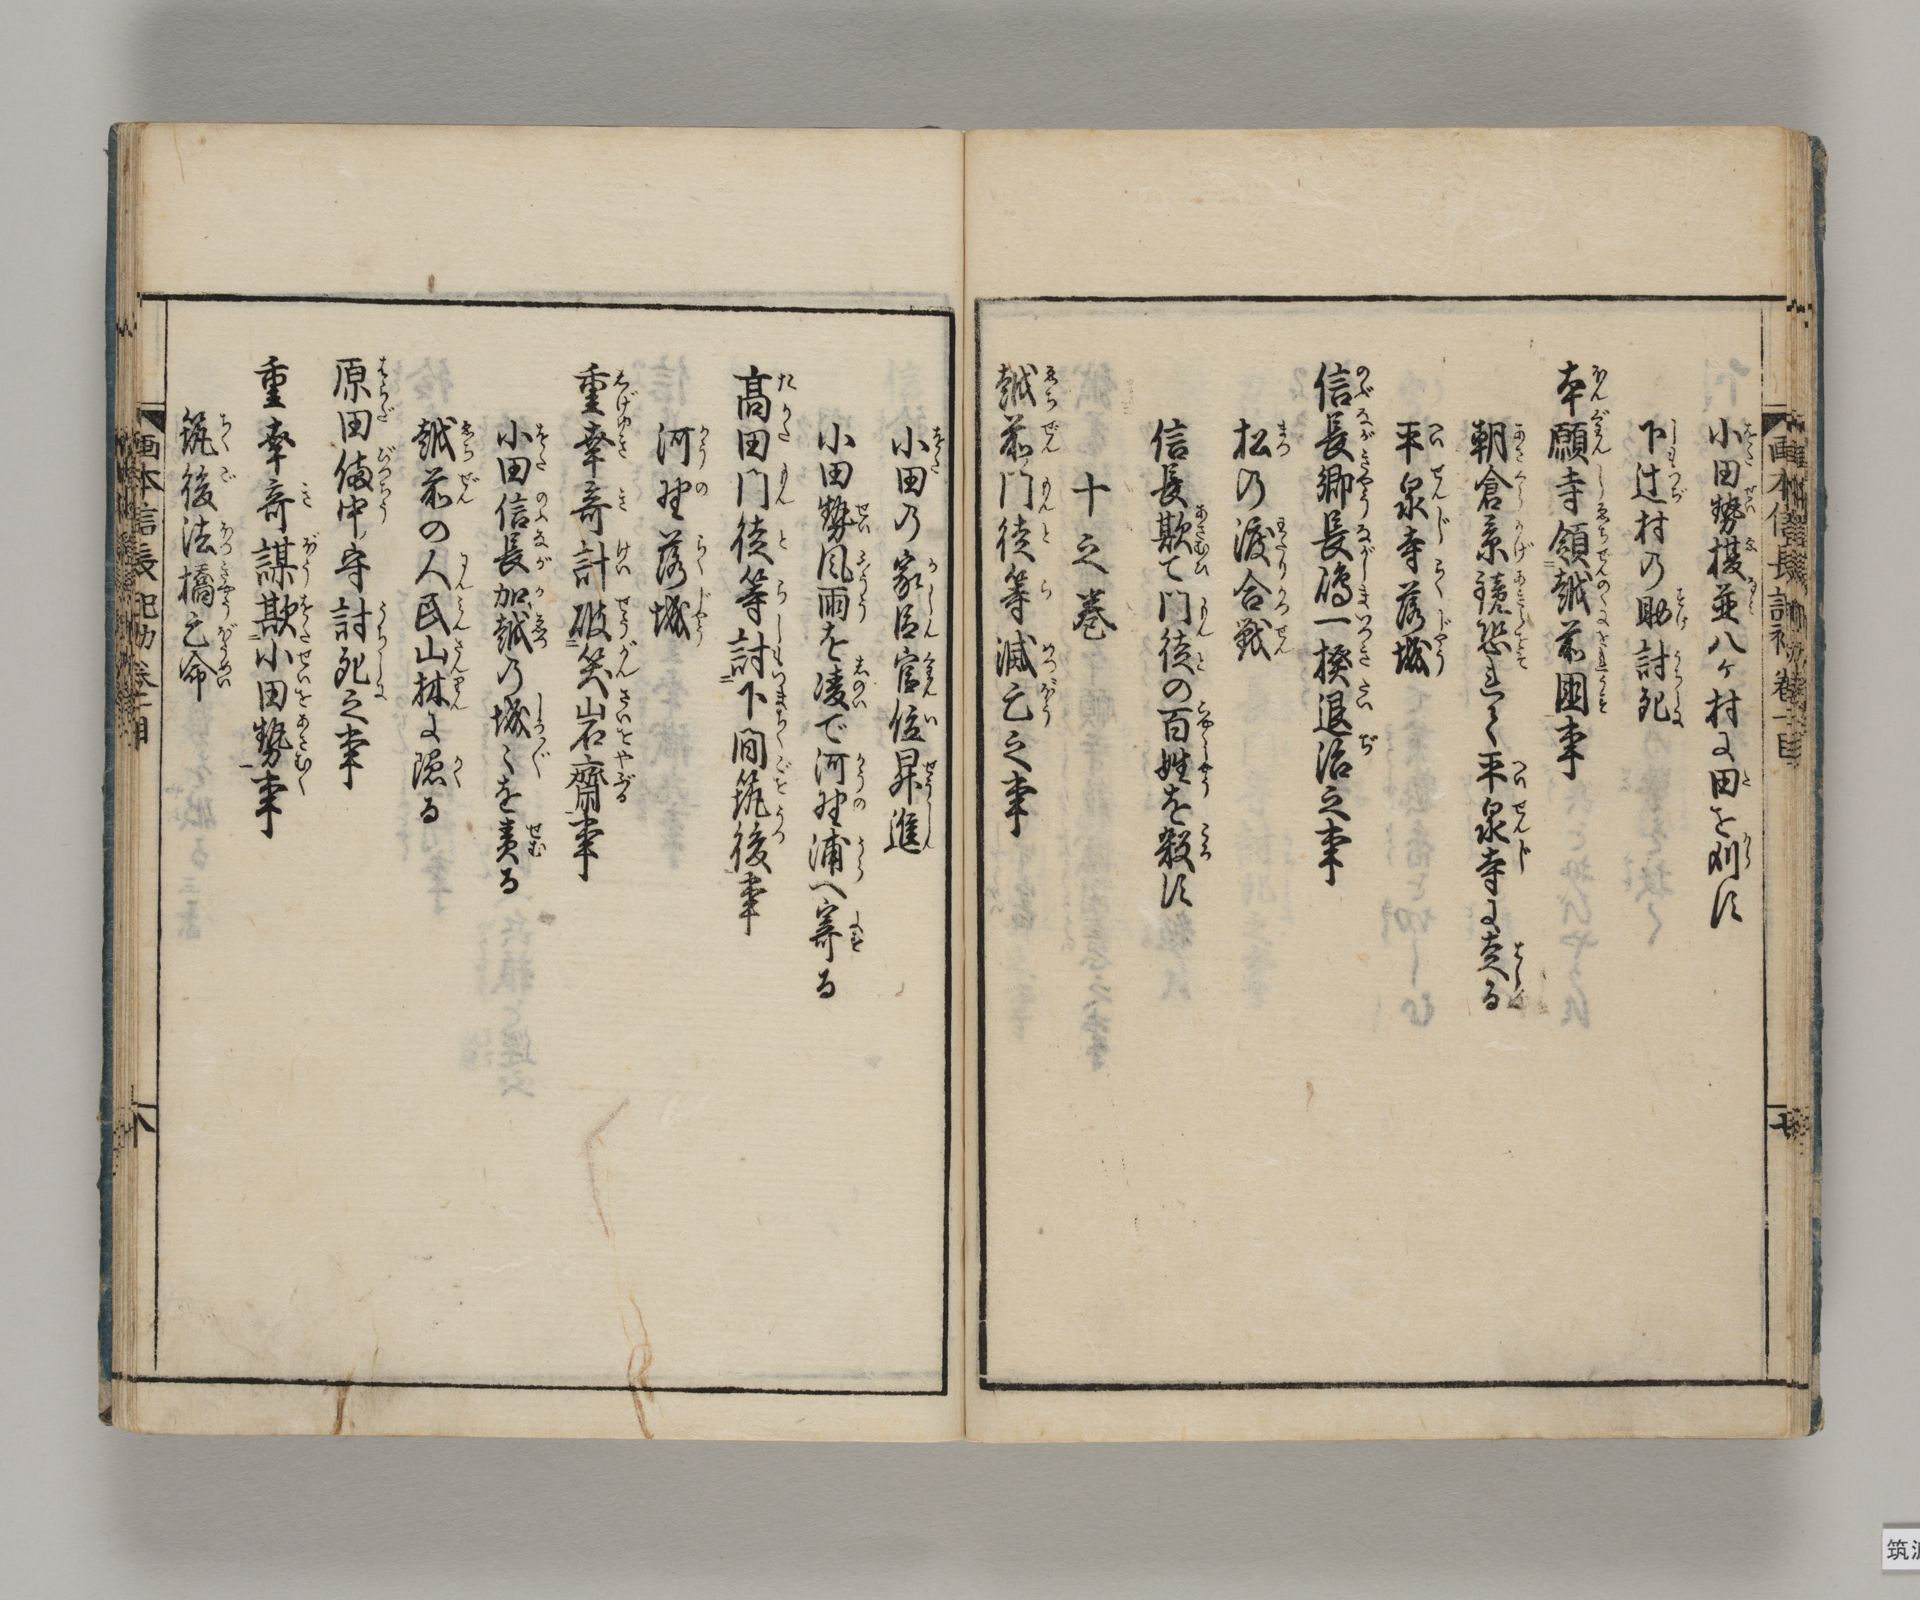 小田勢榎並八ケ村に田を刈す
下辻村の助討死
本願寺領越前國事
朝倉景鏡恐れて平泉寺に走る
平泉寺落城
信長卿長嶋一揆退治之事
松の渡合戦
信長欺て門徒の百姓を殺す
十之巻
越前門徒等滅亡之事
小田の家臣官位昇進
小田勢風雨を凌で河野浦へ寄る
高田門徒等討下間筑後事
河野落城
重幸奇計破笑岩齋事
小田信長加越の城〻を責る
越前の人民山林に隠る
原田備中守討死之事
重幸奇謀欺小田勢事
筑後法橋亡命